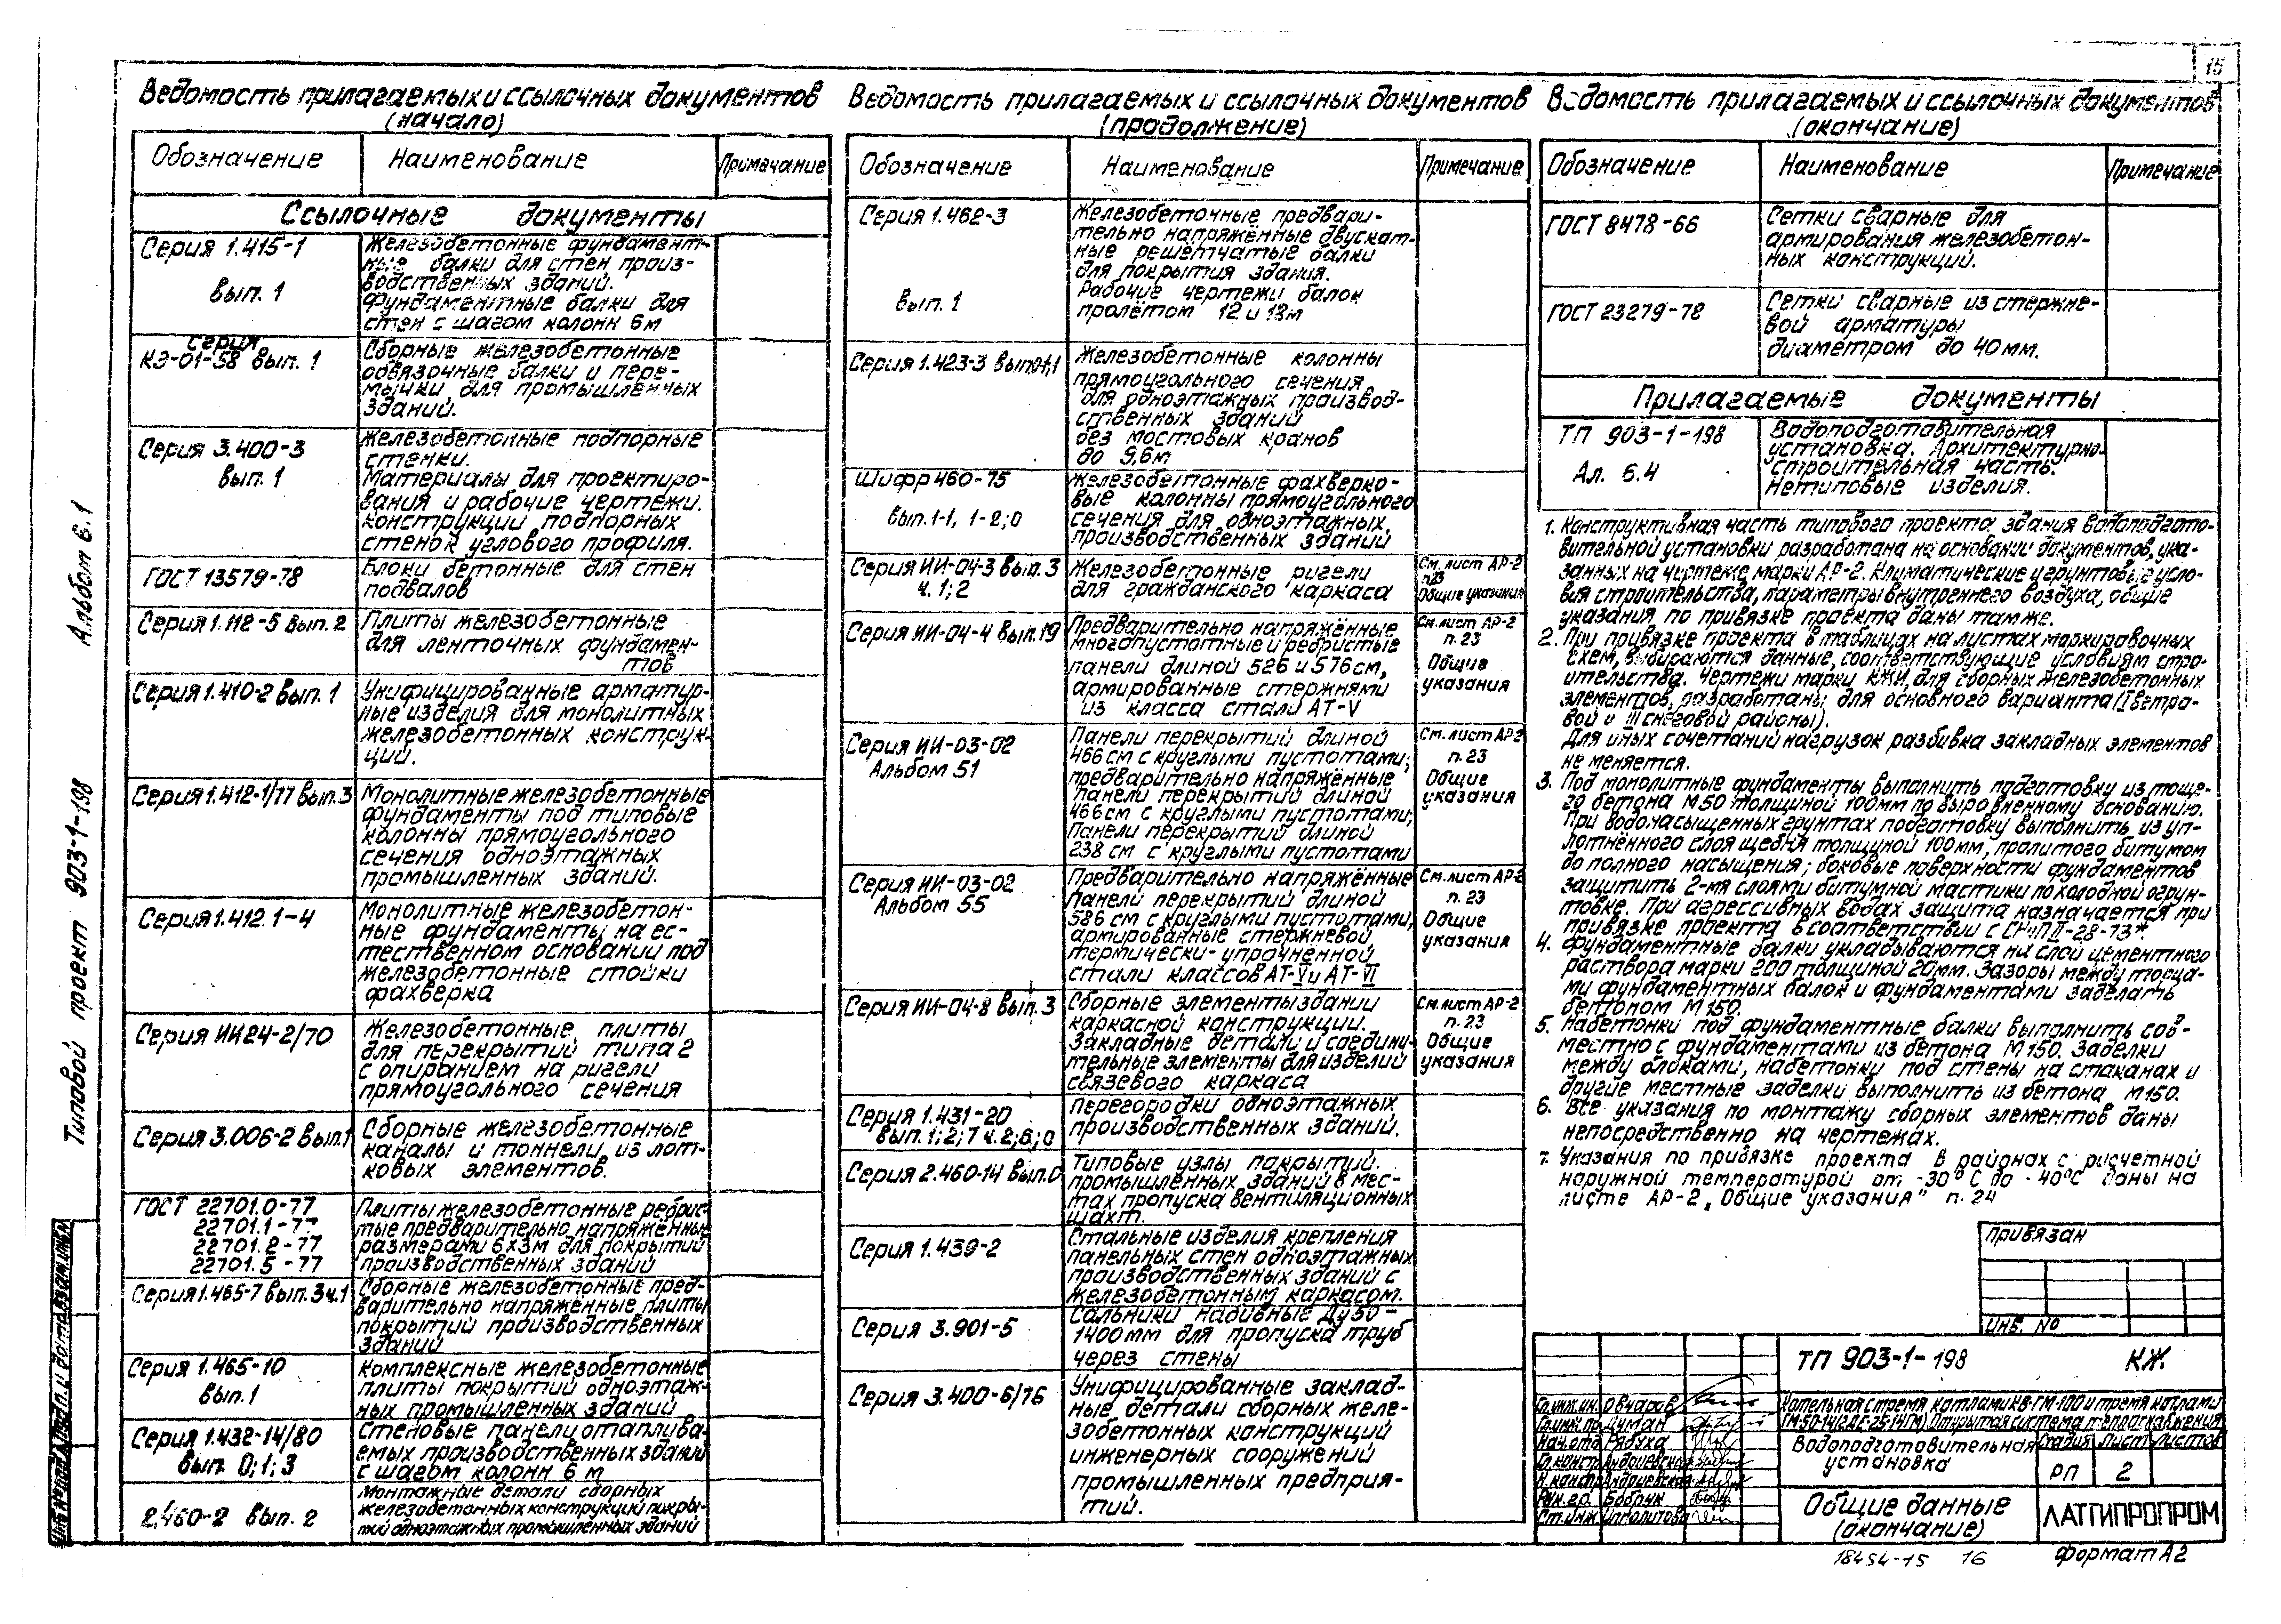 15
Ведомость прилагаемых и ссылочных документов
(начало)
Обозначение Наименование Примечание
Ссылочные документы
Серия 1.415-1
вып. 1
Железобетонные фундамент-
ные балки для стен произ-
водственных зданий.
Фундаментные балки для
стен с шагом колонн 6м
серия
КЭ-01-58 вып. 1
Сборные железобетонные
обвязочные балки и пере-
мычки для промышленных
зданий.
Серия 3.400-3
вып. 1
Железобетонные подпорные
стенки.
Материалы для проектиро-
вания и рабочие чертежи.
Конструкции подпорных
стенок углового профиля.
ГОСТ 13579-78
Блоки бетонные для стен
подвалов
Серия 1.112-5 вып. 2
Плиты железобетонные
для ленточных фундамен-
тов
Серия 1.410-2 вып. 1
Унифицированные арматур-
ные изделия для монолитных
железобетонных конструк-
ций.
Серия 1.412-1/77 вып.3
Монолитные железобетонные
фундаменты под типовые
колонны прямоугольного
сечения одноэтажных
промышленных зданий.
Серия 1.412.1-4
Монолитные железобетон-
ные фундаменты на ес-
тественном основании под
железобетонные стойки
фахверка
Серия ИИ24-2/70
Железобетонные плиты
для перекрытий типа 2
с опиранием на ригели
прямоугольного сечения
Серия 3.006-2 вып.1
Сборные железобетонные
каналы и тоннели из лот-
ковых элементов.
ГОСТ 22701.0-77
22701.1-77
22701.2-77
22701.5-77
Плиты железобетонные ребрис-
тые предварительно напряжённые
размерами 6х3м для покрытий
производственных зданий
Серия 1.465-7 вып. 3ч.1
Сборные железобетонные пред-
варительно напряжённые плиты
покрытий производственных
зданий
Серия 1.465-10
вып.1
Комплексные железобетонные
плиты покрытий одноэтаж-
ных промышленных зданий
Серия 1.432-14/80
вып. 0;1;3
Стеновые панели отаплива-
емых производственных зданий
с шагом колонн 6 м
2.460-2 вып. 2
Монтажные детали сборных
железобетонных конструкций покры-
тий одноэтажных промышленных зданий
Ведомость прилагаемых и ссылочных документов
(продолжение)
Обозначение Наименование Примечание
Серия 1.462-3
вып. 1
Железобетонные предвари-
тельно напряжённые двускат-
ные решетчатые балки
для покрытия здания.
Рабочие чертежи балок
пролётом 12 и 18м
Серия 1.423-3 вып.0-1;1
Железобетонные колонны
прямоугольного сечения
для одноэтажных производ-
ственных зданий
без мостовых кранов
до 9,6м
Шифр 460-75
вып.1-1, 1-2;0
Железобетонные фахверко-
вые колонны прямоугольного
сечения для одноэтажных
производственных зданий
Серия ИИ-04-3 вып. 3
ч. 1;2
Железобетонные ригели
для гражданского каркаса
См. лист АР-2
п.23
Общие указания
Серия ИИ-04-4 вып.19
Предварительно напряжённые
многопустотные и ребристые
панели длиной 526 и 576см,
армированные стержнями
из класса стали АТ-V
См. лист АР-2
п. 23
Общие
указания
Серия ИИ-03-02
Альбом 51
Панели перекрытий длиной
466см с круглыми пустотами;
предварительно напряжённые
панели перекрытий длиной
466см с круглыми пустотами;
Панели перекрытий длиной
238 см с круглыми пустотами
См. лист АР-2
п. 23
Общие
указания
Серия ИИ-03-02
Альбом 55
Предварительно напряжённые
панели перекрытий длиной
586 см с круглыми пустотами,
армированные стержневой
термически-упрочненной
стали классов АТ-V и АТ-VI
См. лист АР-2
п. 23
Общие
указания
Серия ИИ-04-8 вып. 3
Сборные элементы зданий
каркасной конструкции.
Закладные детали и соедини-
тельные элементы для изделий
связевого каркаса
См. лист АР-2
п. 23
Общие
указания
Серия 1.431-20
вып. 1; 2; 7 ч. 2; 6; 0
Перегородки одноэтажных
производственных зданий.
Серия 2.460-14 вып.0
Типовые узлы покрытий
промышленных зданий в мес-
тах пропуска вентиляционных
шахт.
Серия 1.439-2
Стальные изделия крепления
панельных стен одноэтажных
производственных зданий с
железобетонным каркасом.
Серия 3.901-5
Сальники набивные Ду50-
1400мм для пропуска труб
через стены
Серия 3.400-6/76
Унифицированные заклад-
ные детали сборных желе-
зобетонных конструкций
инженерных сооружений
промышленных предприя-
тий.
Ведомость прилагаемых и ссылочных документов
(окончание)
Обозначение Наименование Примечание
ГОСТ 8478-66
Сетки сварные для
армирования железобетон-
ных конструкций.
ГОСТ 23279-78
Сетки сварные из стержне-
вой арматуры
диаметром до 40мм.
Прилагаемые документы
ТП 903-1-198
Ал. 6.4
Водоподготовительная
установка. Архитектурно-
строительная часть.
Нетиповые изделия.
1. Конструктивная часть типового проекта здания водоподгото-
вительной установки разработана на основании документов, ука-
занных на чертеже марки АР-2. Климатические и грунтовые усло-
вия строительства, параметры внутреннего воздуха, общие
указания по привязке проекта даны там же.
2. При привязке проекта в таблицах на листах маркировочных
схем, выбираются данные, соответствующие условиям стро-
ительства. Чертежи марки КЖИ, для сборных железобетонных
элементов, разработаны для основного варианта (I ветро-
вой и III снеговой районы).
Для иных сочетаний нагрузок разбивка закладных элементов
не меняется.
3. Под монолитные фундаменты выполнить подготовку из тоще-
го бетона М50 толщиной 100мм по выровненному основанию.
При водонасыщенных грунтах подготовку выполнить из уп-
лотнённого слоя щебня толщиной 100мм, пролитого битумом
до полного насыщения; боковые поверхности фундаментов
защитить 2-мя слоями битумной мастики по холодной огрун-
товке. При агрессивных водах защита назначается при
привязке проекта в соответствии с СНиП II-28-73*.
4. Фундаментные балки укладываются на слой цементного
раствора марки 200 толщиной 20мм. Зазоры между торца-
ми фундаментных балок и фундаментами заделать
бетоном М150.
5. Набетонки под фундаментные балки выполнить сов-
местно с фундаментами из бетона М150. Заделки
между блоками, набетонки под стены на стаканах и
другие местные заделки выполнить из бетона М150.
6. Все указания по монтажу сборных элементов даны
непосредственно на чертежах.
7. Указания по привязке проекта в районах с расчетной
наружной температурой от -30°С до -40°С даны на
листе АР-2 „Общие указания" п. 24
Привязан
Инв. №
ТП 903-1-198 КЖ
Котельная с тремя котлами КВ-ГМ-100 и тремя котлами
ГМ-50-14 (2ДЕ-25-14ГМ) Открытая система теплоснабжения
Гл.инж.ин. Овчаров
Гл.инж.пр. Цуман
Нач.отд. Рябуха
Гл.констр. Андриевская
Н.контр. Андриевская
Рук.гр. Бобрик
Ст.инж. Ипполитова
Водоподготовительная
установка
Стадия Лист Листов
РП 2
Общие данные
(окончание)
ЛАТГИПРОПРОМ
18454-15 16 Формат А2
Типовой проект 903-1-198 Альбом 6.1
Инв.№ подл. Подп. и дата Взам.инв.№